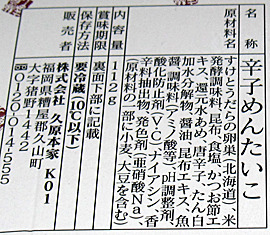 名称 辛子めんたいこ
原材料名 すけとうだらの卵巣(北海道)、米
発酵調味料、昆布、食塩、かつお節エ
キス、還元水あめ、唐辛子、たん白
加水分解物、醤油、昆布エキス、魚
醤、調味料(アミノ酸等)、pH調整剤、
酸化防止剤(V・C)、ナイアシン、香
辛料抽出物、発色剤(亜硝酸Na)、
(原材料の一部に小麦、大豆を含む)
112g
賞味期限 裏面下部に記載
保存方法 要冷蔵(10℃以下)
販売者 株式会社 久原本家 K01
福岡県糟屋郡久山町
大字猪野1442
0120-014-555